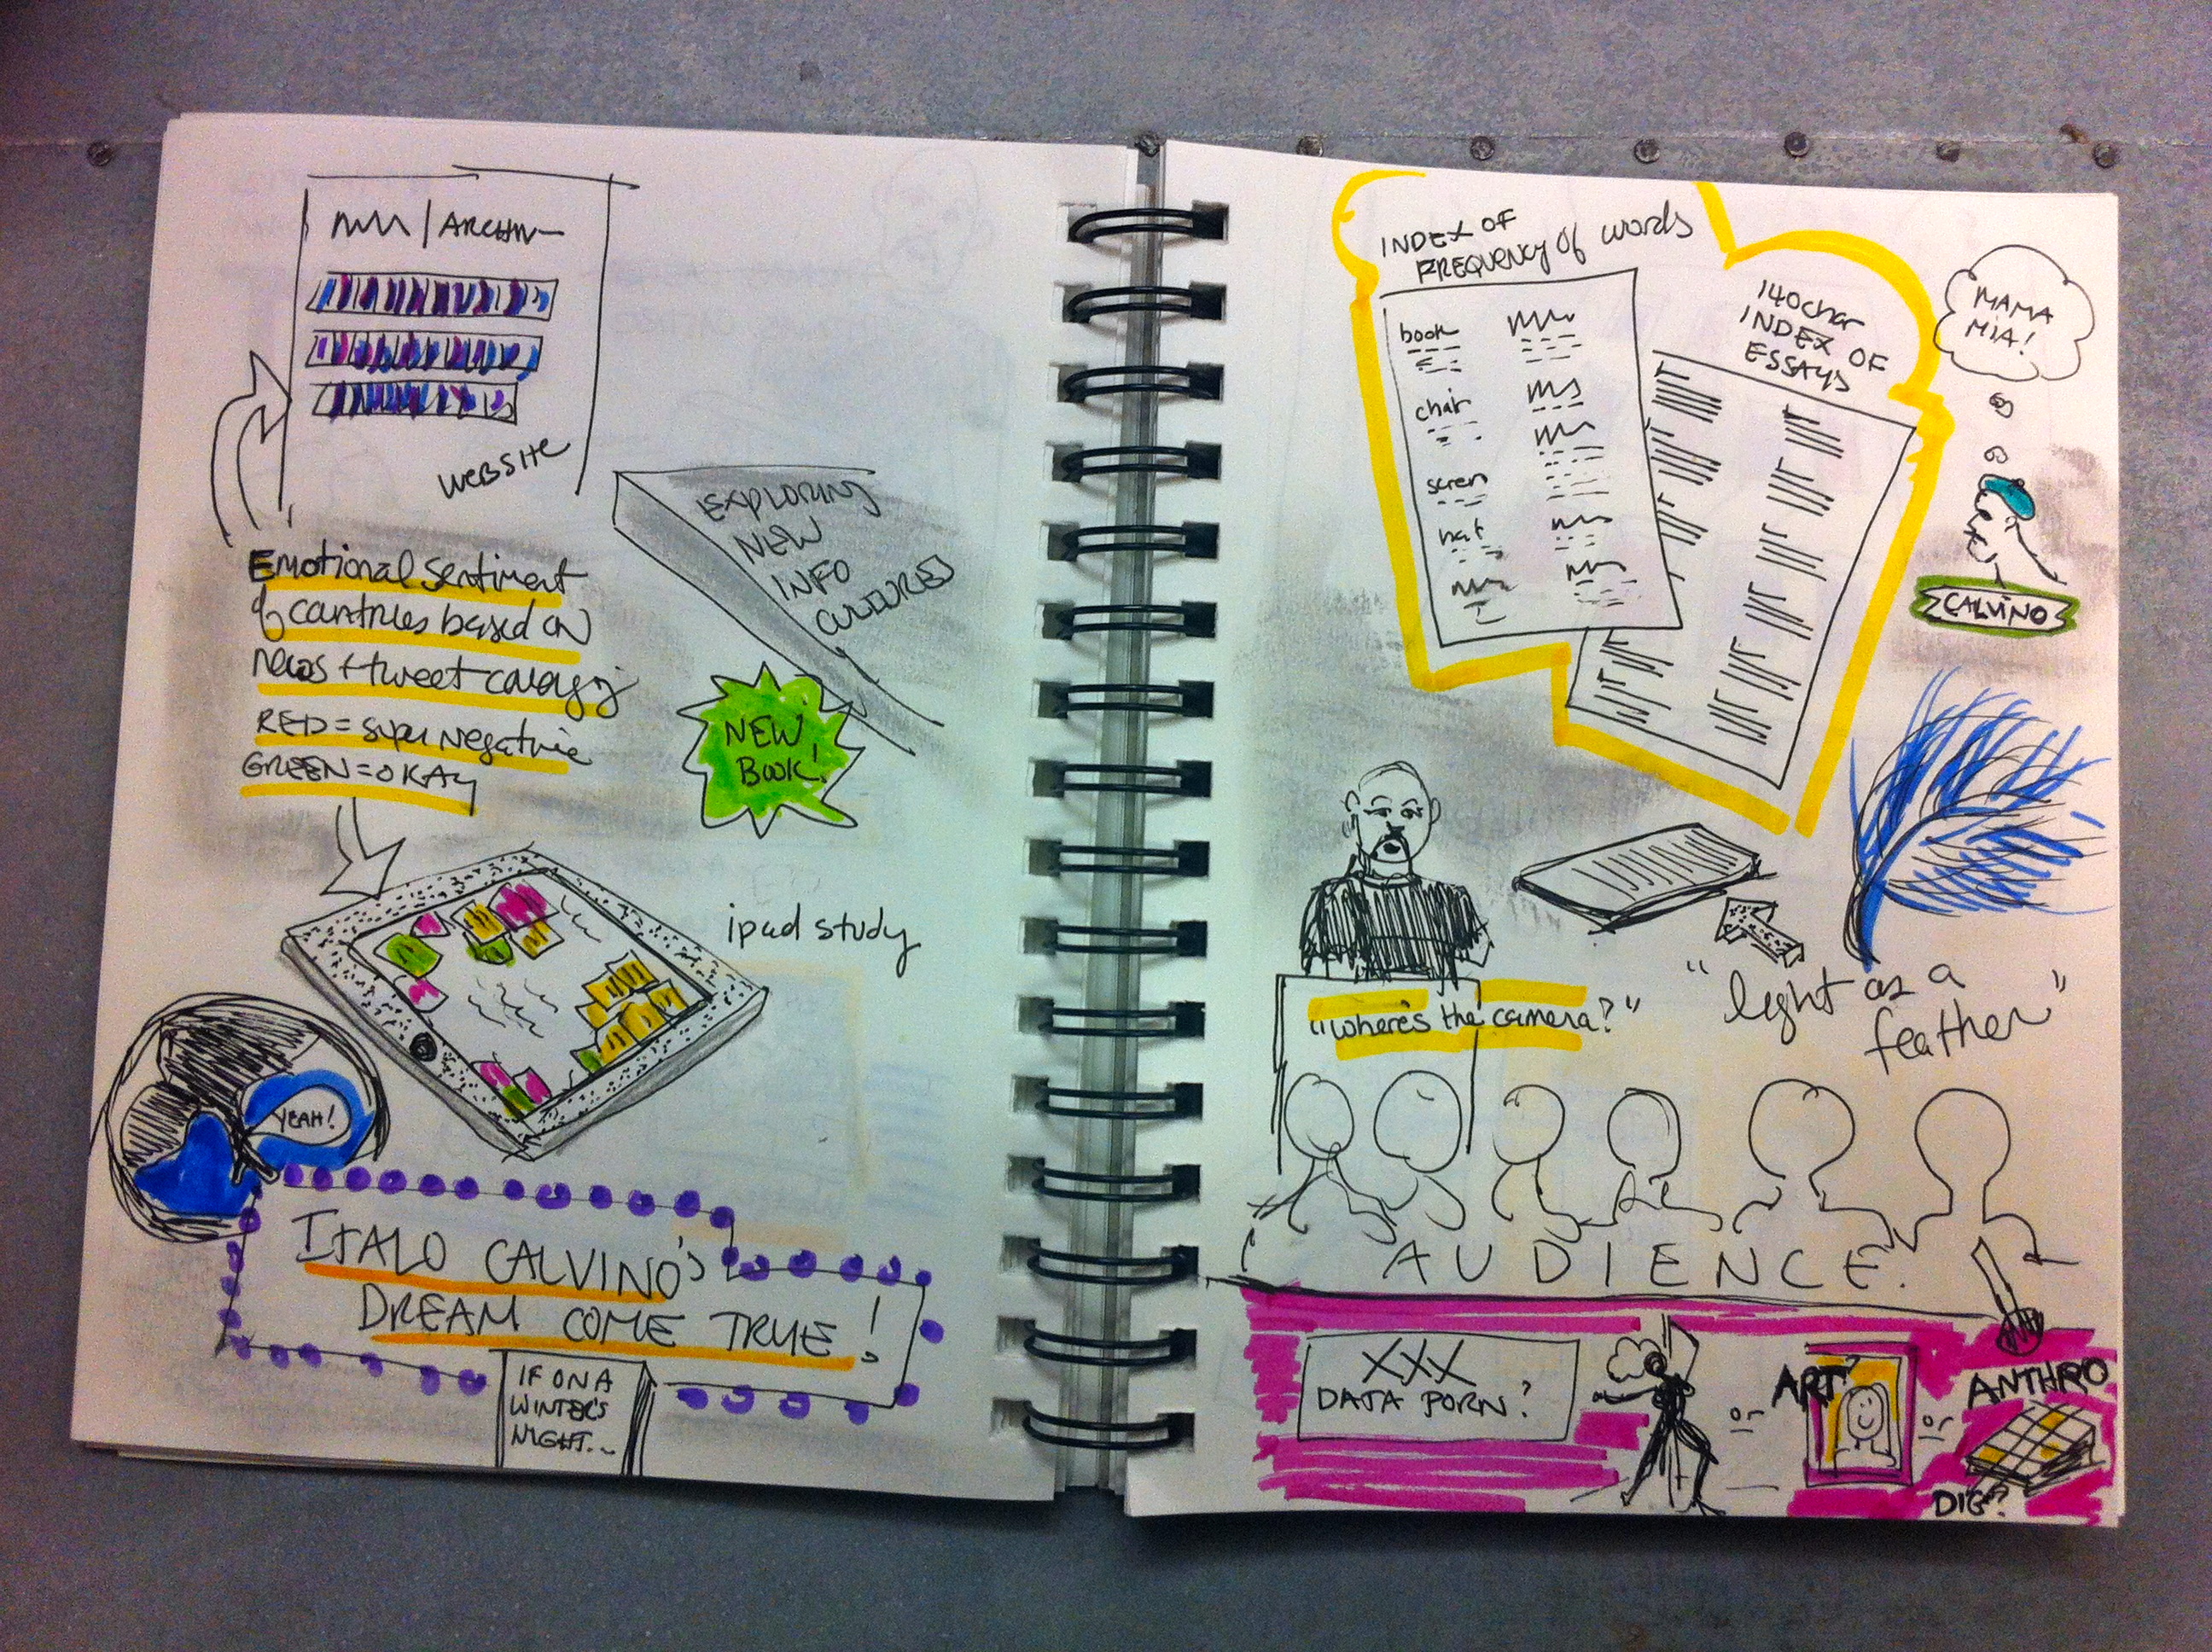 WEBSITE
EXPLORING
NEW
INFO
CULTURES
Emotional sentiment
of countries based on
news + tweet
RED = super negative
GREEN = OKAY
NEW
BOOK!
ipad study
YEAH!
ITALO CALVINO'S
DREAM COME TRUE!
IF ON A
WINTER'S
NIGHT...
INDEX OF
FREQUENCY of words
book
chair
screen
hat
140char
INDEX OF
ESSAYS
MAMA
MIA!
CALVINO
"where's the camera?"
"light as a
feather"
AUDIENCE.
XXX
DATA PORN?
or
ART?
or
ANTHRO
DIG?